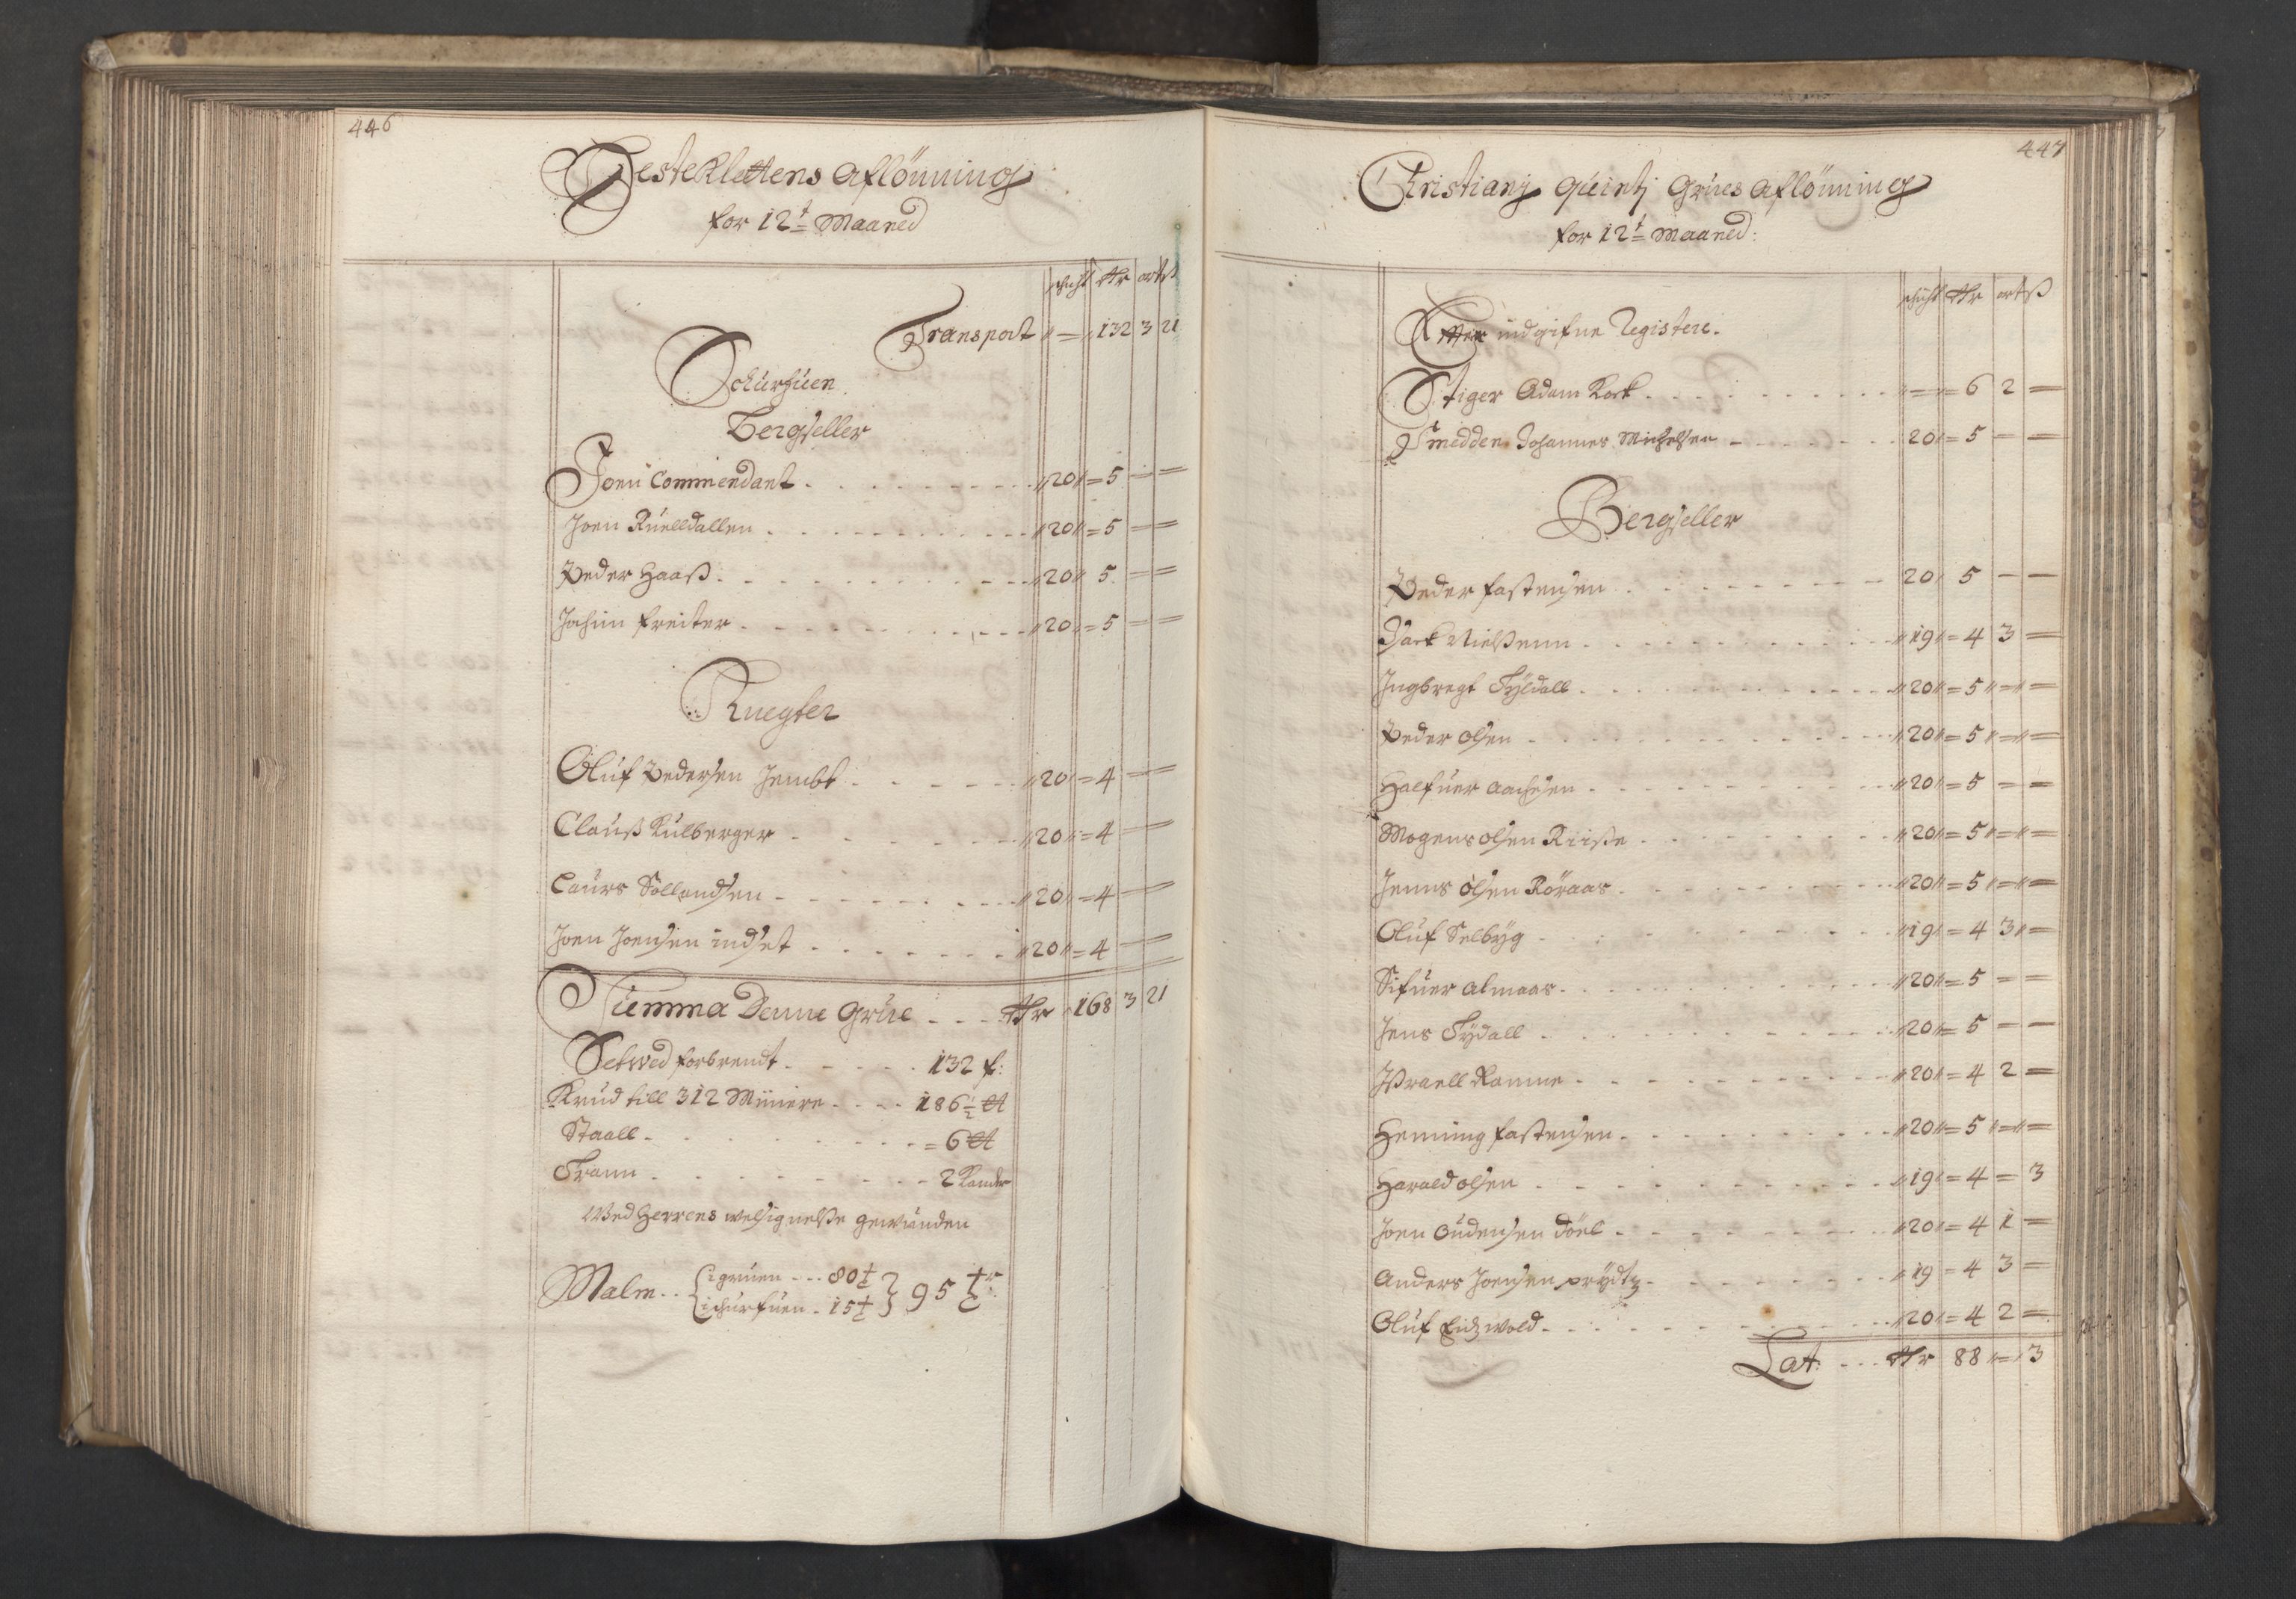 446
Hesteklettens Aflönning
for 12t Maaned
schicht Rdr ort ß
Transport " = " 132 3 21
Schurfuen
Bergseller
Joen Commendant . . . . "20" = 5 — =
Joen Kuelldallen . . . . "20" = 5 — =
Peder Haaß . . . . "20" 5 — =
Jochim Freiter . . . . "20" = 5 — =
Knegter
Oluf Pedersen Jembt . . . . "20" = 4 —
Clauß Kulberger . . . . "20" = 4 —
Laurs Sollandsen . . . . "20" = 4 —
Joen Joensen indset . . . . "20" = 4 —
Summa Denne Grue . . . Rdr 168 3 21
Setwed forbrendt . . . . 132 f:
Krud till 312 Minere . . . . 186½ ℔
Staall . . . . = 6 ℔
Trann . . . . 2 Kander
Med Herrens welsignelße gewunden
Malm . . { i gruen . . . 80 t
i schurfuen . 15 t } 95 tr
447
Christianj Quintj Grues Aflönning
for 12t Maaned:
schicht Rdr ort ß
Efter indgifne Registere.
Stiger Adam Kock . . . . "—" = 6 2 =
Smedden Johannes Michelsen . . . . 20" = 5 — =
Bergseller
Peder fastensen . . . . 20" 5 — —
Isack Nielßenn . . . . "19" = 4 3 =
Ingbregt Tyldall . . . . "20" = 5 " = " =
Peder Olsen . . . . "20" = 5 " = " =
Halfuer Aachesen . . . . "20" = 5 = =
Mogens Olsen Riiße . . . . "20" = 5 " = " =
Jenns Olsen Röraas . . . . "20" = 5 " = " =
Oluf Selbyg . . . . "19" = 4 3 " =
Sifuer Almaas . . . . "20" = 5 = =
Jens Tydall . . . . "20" = 5 — —
Ißraell Ramme . . . . "20" = 4 2 =
Henning fastensen . . . . "20" = 5 " = " =
Harald Olsen . . . . "19" = 4 = 3
Joen Oudensen Döel . . . . "20" = 4 1 =
Anders Joensen prydtz . . . . "19 = 4 3 =
Oluf Eidzwold . . . . "20" = 4 2 =
Lat: . . . Rdr 88 " = " 3